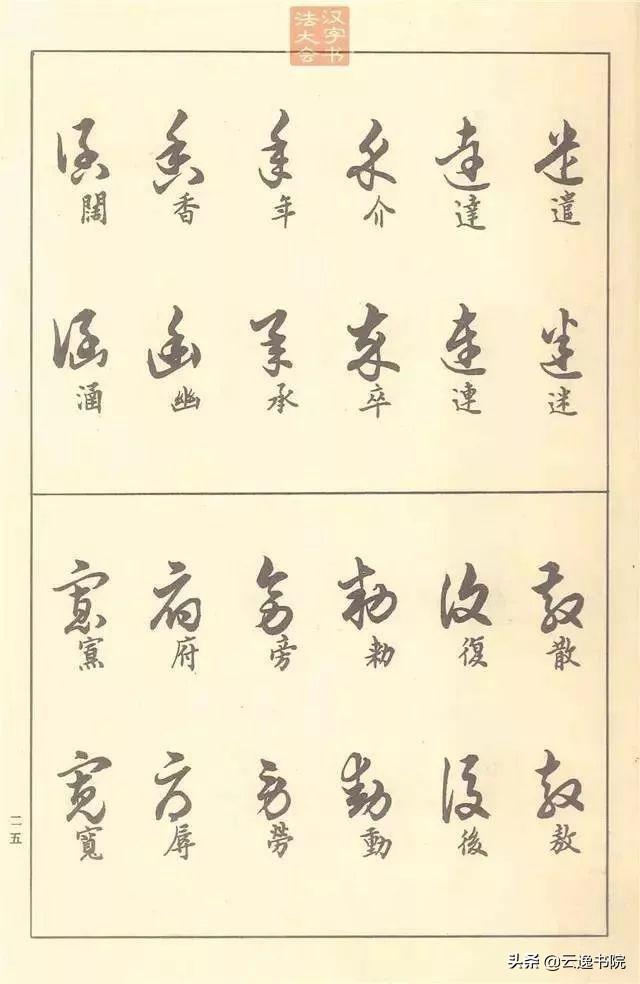 汉字书
法大会
遣
迷
達
連
介
卒
年
承
香
幽
闊
涵
散
敖
復
後
勅
動
旁
勞
府
辱
寬
二五
头条 @云逸书院